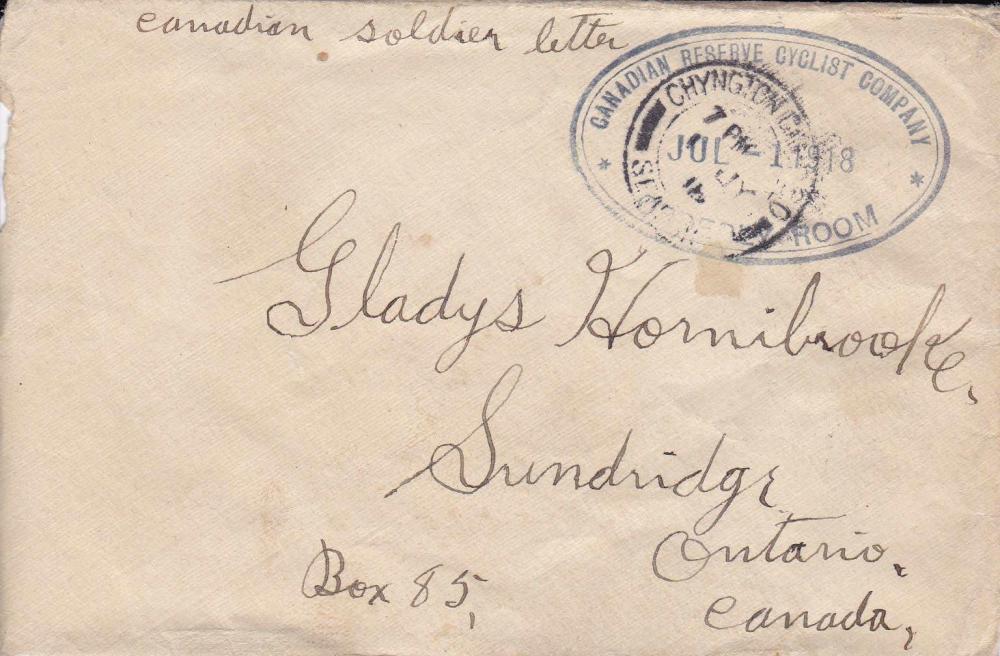 canadian soldier letter
CANADIAN RESERVE CYCLIST COMPANY
CHYNGTON
7 PM
JUL -1 1918
JY
18
ROOM
Gladys Hornibrooke,
Sundridge
Ontario.
Box 85,
Canada,